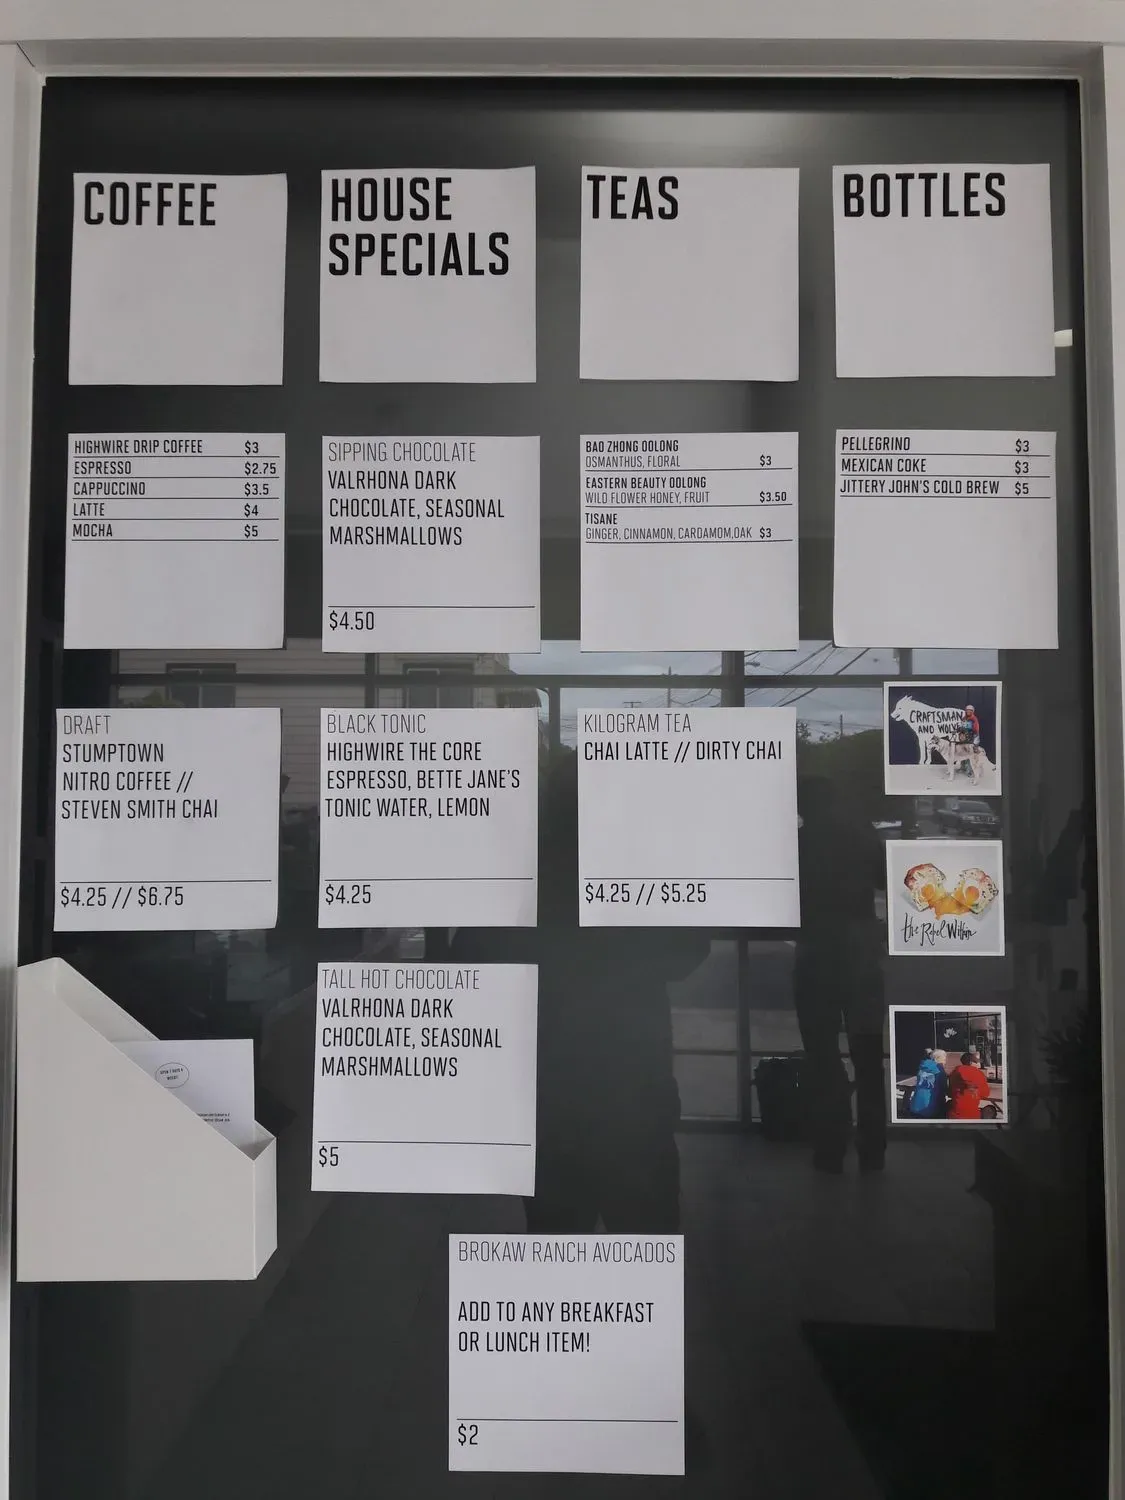 COFFEE
HOUSE
SPECIALS
TEAS
BOTTLES
HIGHWIRE DRIP COFFEE $3
ESPRESSO $2.75
CAPPUCCINO $3.5
LATTE $4
MOCHA $5
SIPPING CHOCOLATE
VALRHONA DARK
CHOCOLATE, SEASONAL
MARSHMALLOWS
$4.50
BAO ZHONG OOLONG
OSMANTHUS, FLORAL $3
EASTERN BEAUTY OOLONG
WILD FLOWER HONEY, FRUIT $3.50
TISANE
GINGER, CINNAMON, CARDAMOM,OAK $3
PELLEGRINO $3
MEXICAN COKE $3
JITTERY JOHN'S COLD BREW $5
DRAFT
STUMPTOWN
NITRO COFFEE //
STEVEN SMITH CHAI
$4.25 // $6.75
BLACK TONIC
HIGHWIRE THE CORE
ESPRESSO, BETTE JANE'S
TONIC WATER, LEMON
$4.25
KILOGRAM TEA
CHAI LATTE // DIRTY CHAI
$4.25 // $5.25
CRAFTSMAN
AND WOLVES
the Rebel Within
TALL HOT CHOCOLATE
VALRHONA DARK
CHOCOLATE, SEASONAL
MARSHMALLOWS
$5
BROKAW RANCH AVOCADOS
ADD TO ANY BREAKFAST
OR LUNCH ITEM!
$2